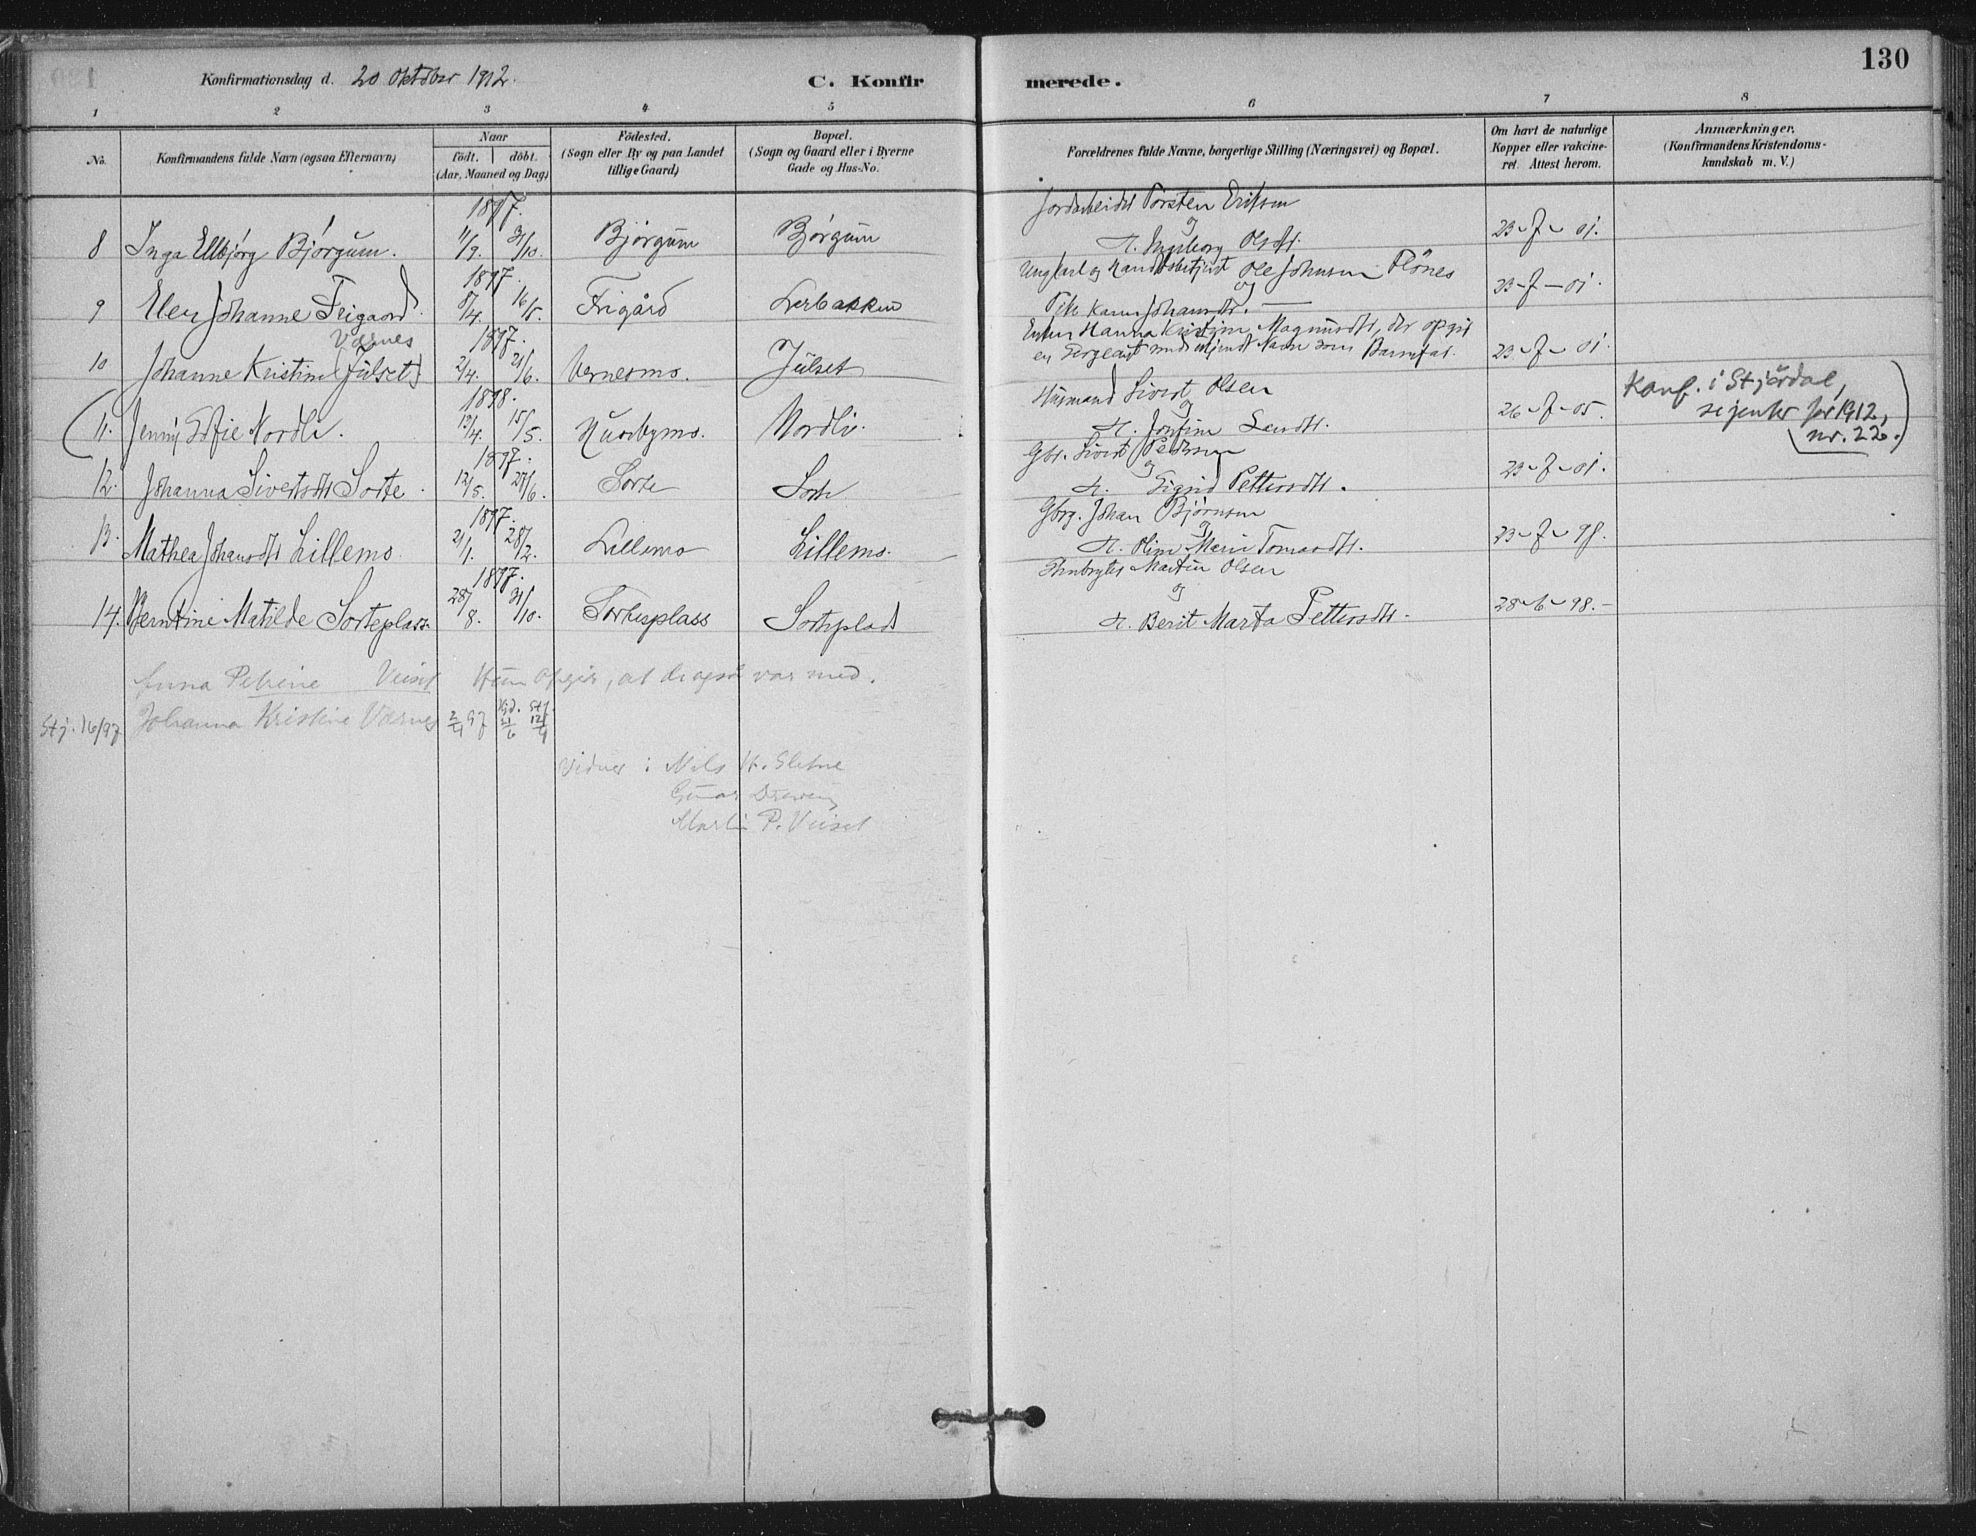 130
Konfirmationsdag d. 20 oktober 1912.
C. Konfirmerede.
1 2 3 4 5 6 7 8
No.
Konfirmandens fulde Navn (ogsaa Efternavn)
Naar
födt. döbt.
(Aar, Maaned og Dag)
Födested.
(Sogn eller By og paa Landet
tillige Gaard)
Bopæl.
(Sogn og Gaard eller i Byerne
Gade og Hus-No.
Forældrenes fulde Navne, borgerlige Stilling (Næringsvei) og Bopæl.
Om havt de naturlige
Kopper eller vakcine-
ret. Attest herom.
Anmærkninger.
(Konfirmandens Kristendoms-
kundskab m. V.)
1897. Torsten Eriksen
8 Inga Ellbjørg Bjørgum. 11/9. 31/10. Bjørgum Bjørgum og H. Ingeborg Olsdtr. 23-7-01.
1897. Ungkarl og Ole Johnsen Flönes
9 Johanne Frigaard 8/4. 16/5. Frigård Lerbakken og Pike 23-7-01.
Værnes
1897. Hanna Kristine Magnusdtr, der opgir
10 Johanne Kristine (Julset) 2/4. 21/6. Vernesmo. Julset en Sergeant med Navn som Barnefar. 23-7-01.
1898. Husmand Sivert Olsen
(11. Jenny Sofie Nordli. 13/4. 15/5. Husbymo. Nordli. og H. 26-7-05.
Konf. i Stjørdal,
se jenter for 1912,
nr. 22.)
1897. Gbr. Sivert Pedersen
12. Johanna Sivertsdtr Sorte. 12/5. 27/6. Sorte Sorte og H. Sigrid Pettersdtr. 23-7-01.
1897. Gbrg. Johan Bjørnsen
13. Mathea Johansdtr Lillemo. 21/1. 28/2. Lillemo Lillemo. og H. Oline Marie Tomasdtr. 23-7-98.
1897. Martin Olsen
14. Berntine Matilde Sorteplass 28/8. 31/10. Sortesplass Sorteplads og H. Berit Marta Pettersdtr. 28-6-98.
Anna Petrine Veiset Hun opgir, at de også var med.
Stj. 16/97 Johanna Kristine Værnes 2/4 97 21/6 12/9
Vidner: Nils H. Sletne
Gunar
Martin P. Veiset